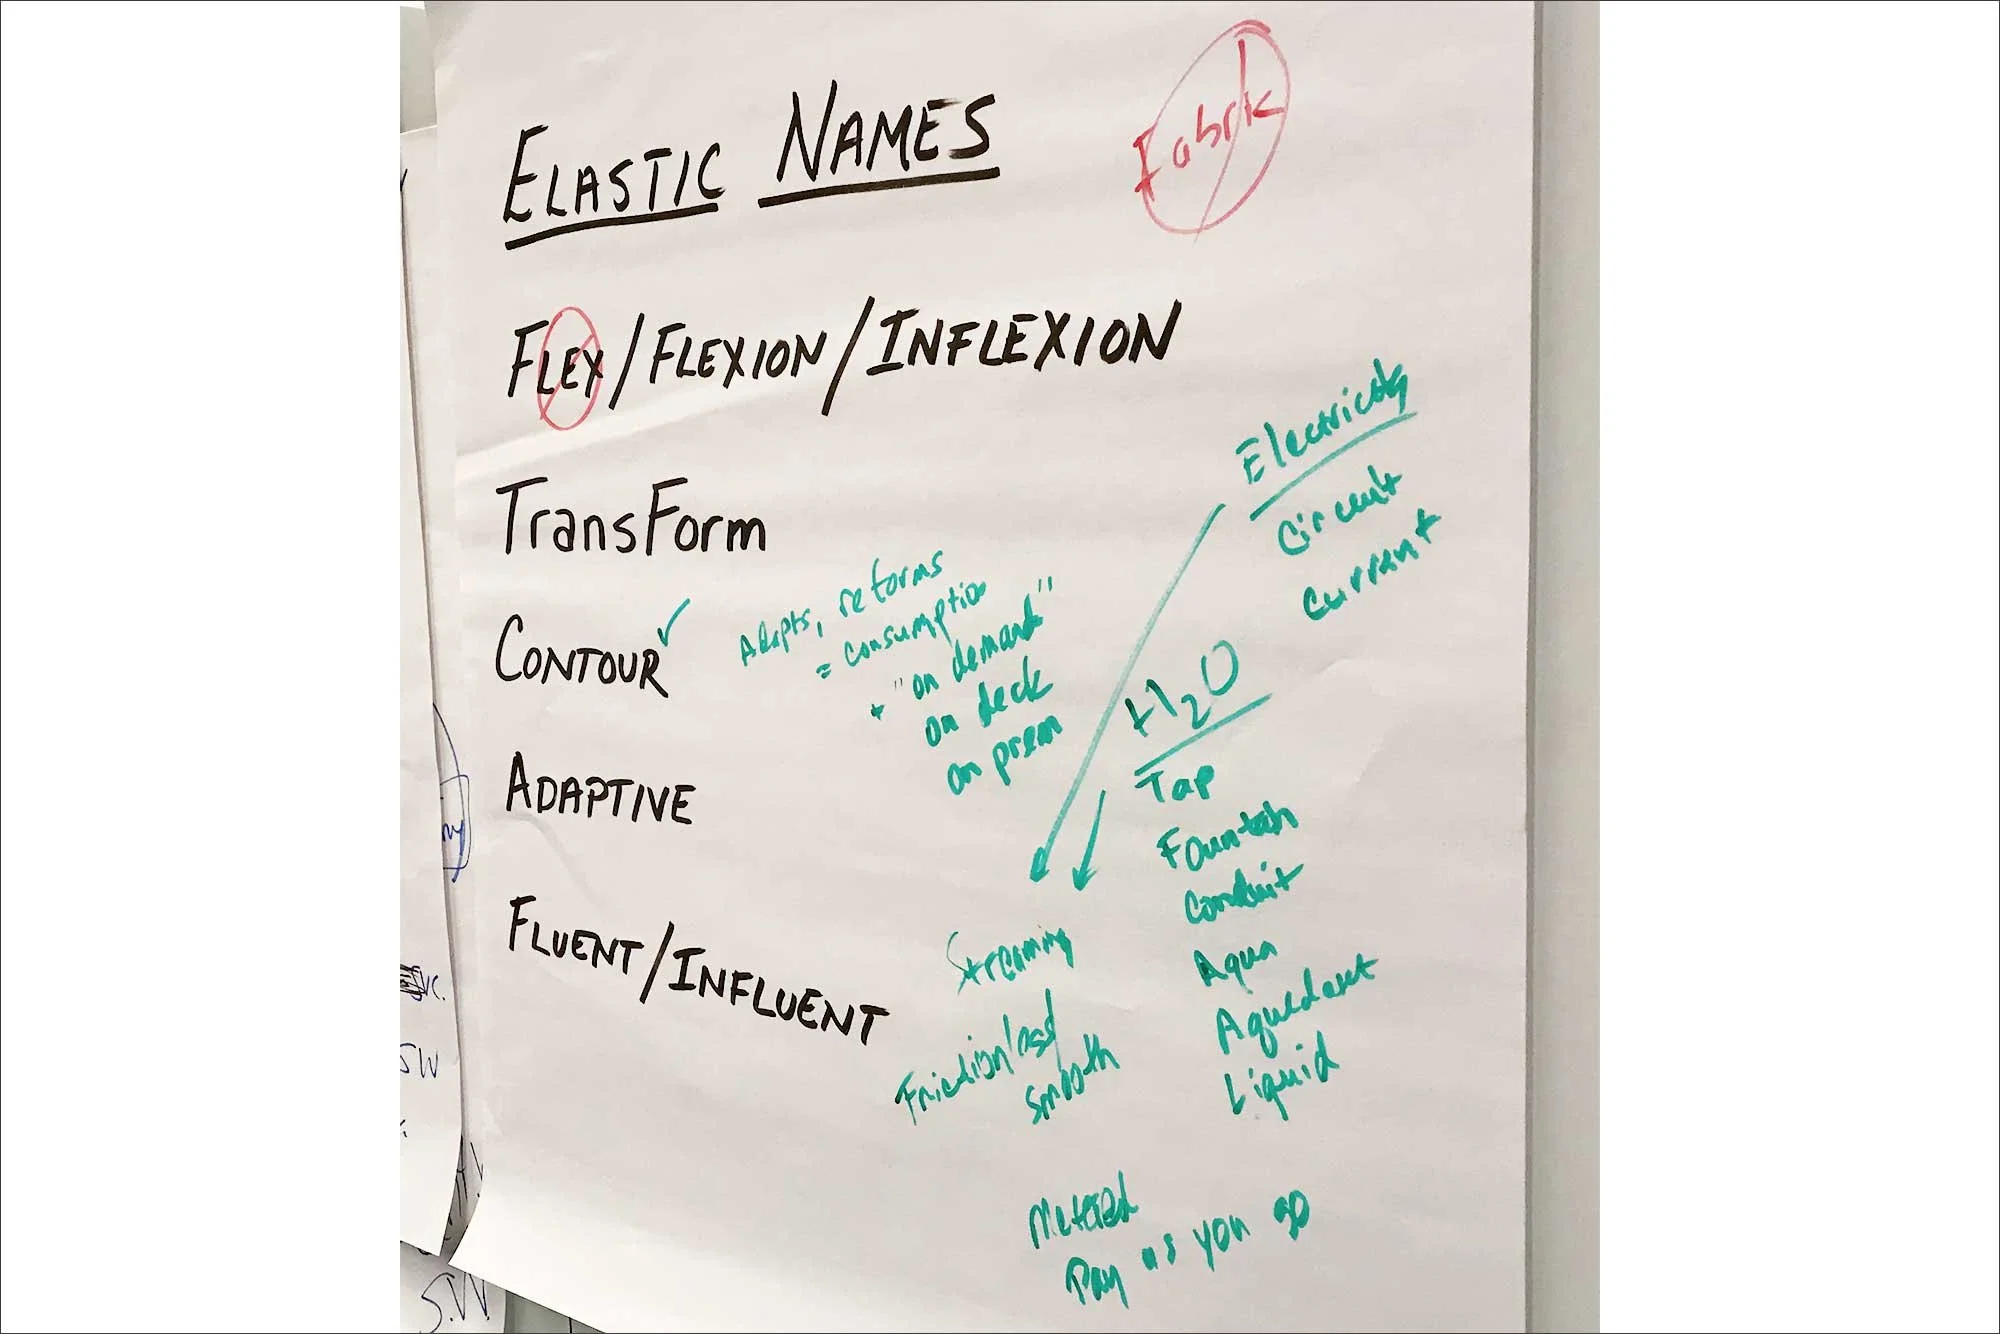 ELASTIC NAMES
Fabrik
FLEX/FLEXION/INFLEXION
TransForm
CONTOUR✓
ADAPTIVE
FLUENT/INFLUENT
Adapts, reforms
= consumption
+ "on demand"
on deck
on prem
Electricity
Circuit
Current
H₂O
Tap
Fountain
Conduit
Aqua
Aqueduct
Liquid
Streaming
Frictionless
Smooth
Metered
Pay as you go
SVC.
SW
S.W